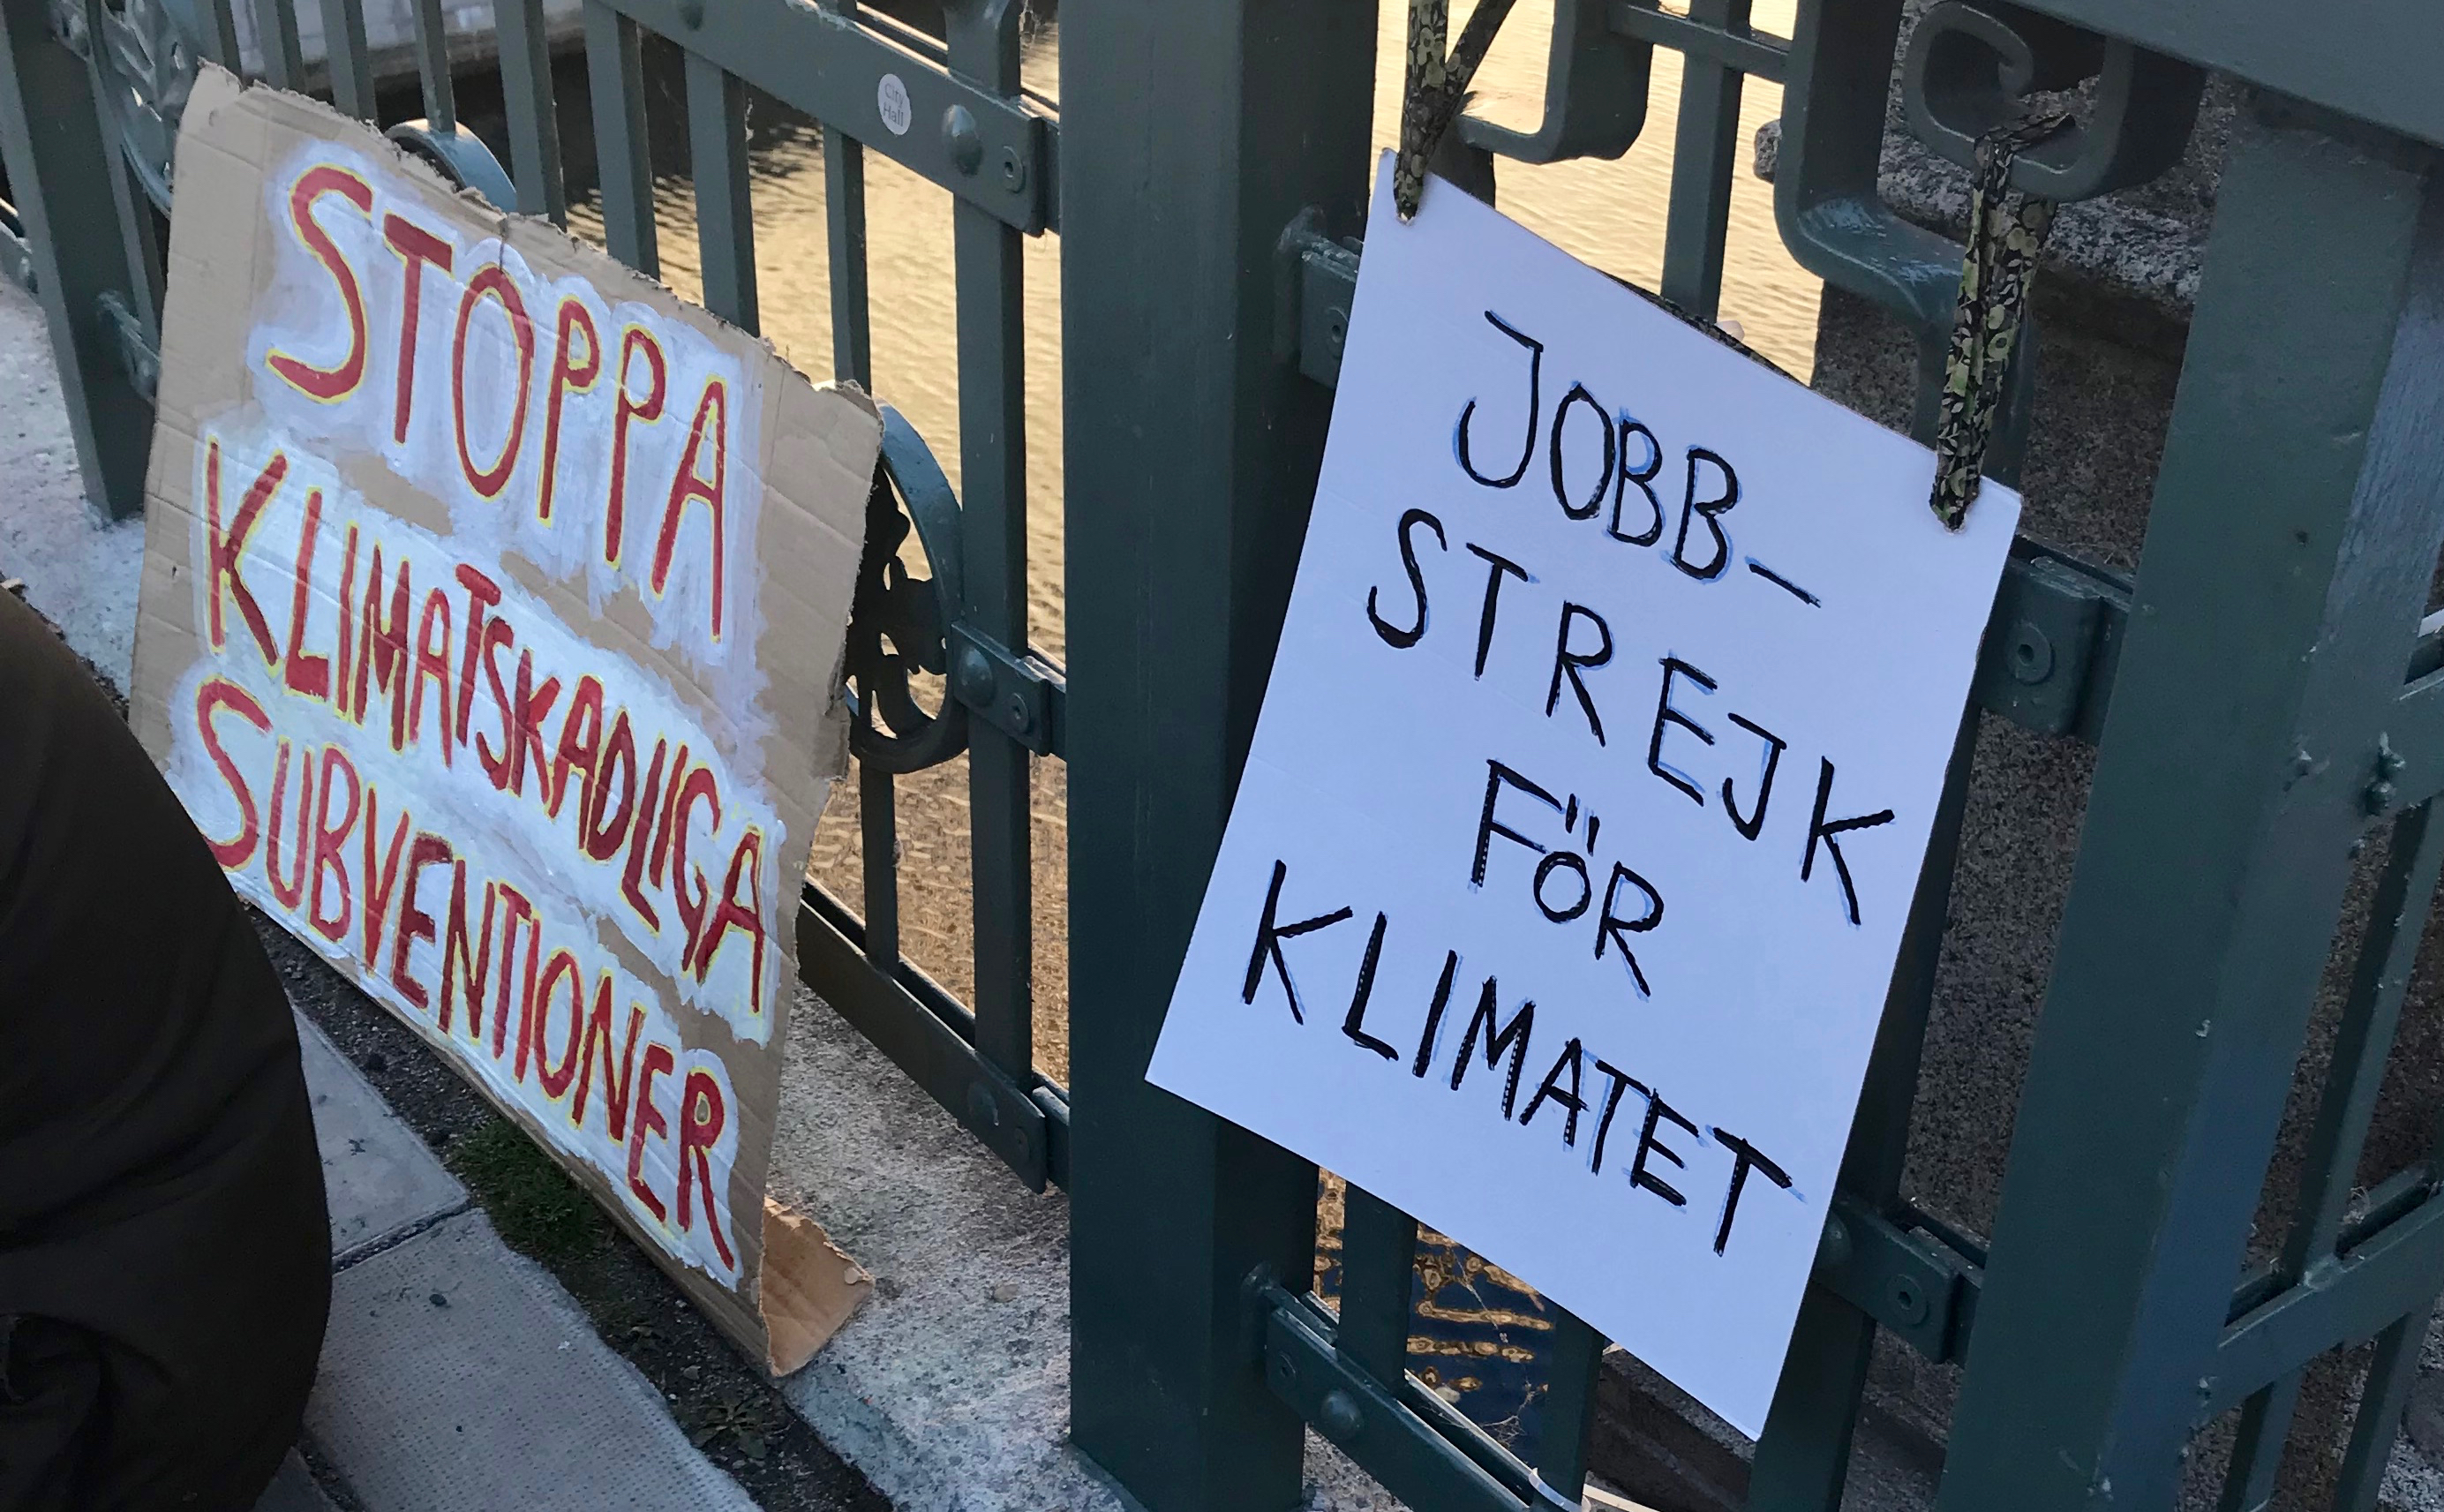 City
Hall
STOPPA
KLIMATSKADLIGA
SUBVENTIONER
JOBB-
STREJK
FÖR
KLIMATET